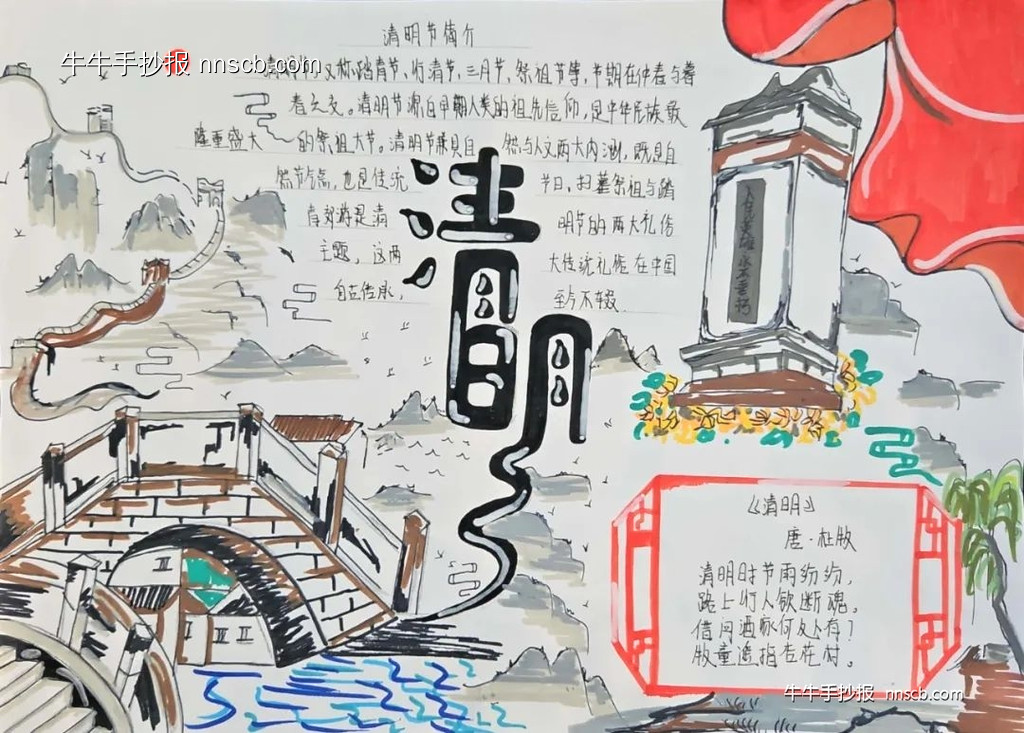 清明节简介
牛牛手抄报 nnscb.com
又称踏青节、行清节、三月节、祭祖节等，节期在仲春与暮
春之交。清明节源自早期人类的祖先信仰，是中华民族最
隆重盛大的祭祖大节。清明节兼具自然与人文两大内涵，既是自
然节气点，也是传统节日，扫墓祭祖与踏
青郊游是清明节的两大礼俗
主题，这两大传统礼俗在中国
自古传承，至今不辍.
清明
人民英雄永垂不朽
《清明》
唐·杜牧
清明时节雨纷纷，
路上行人欲断魂。
借问酒家何处有？
牧童遥指杏花村。
牛牛手抄报 nnscb.com